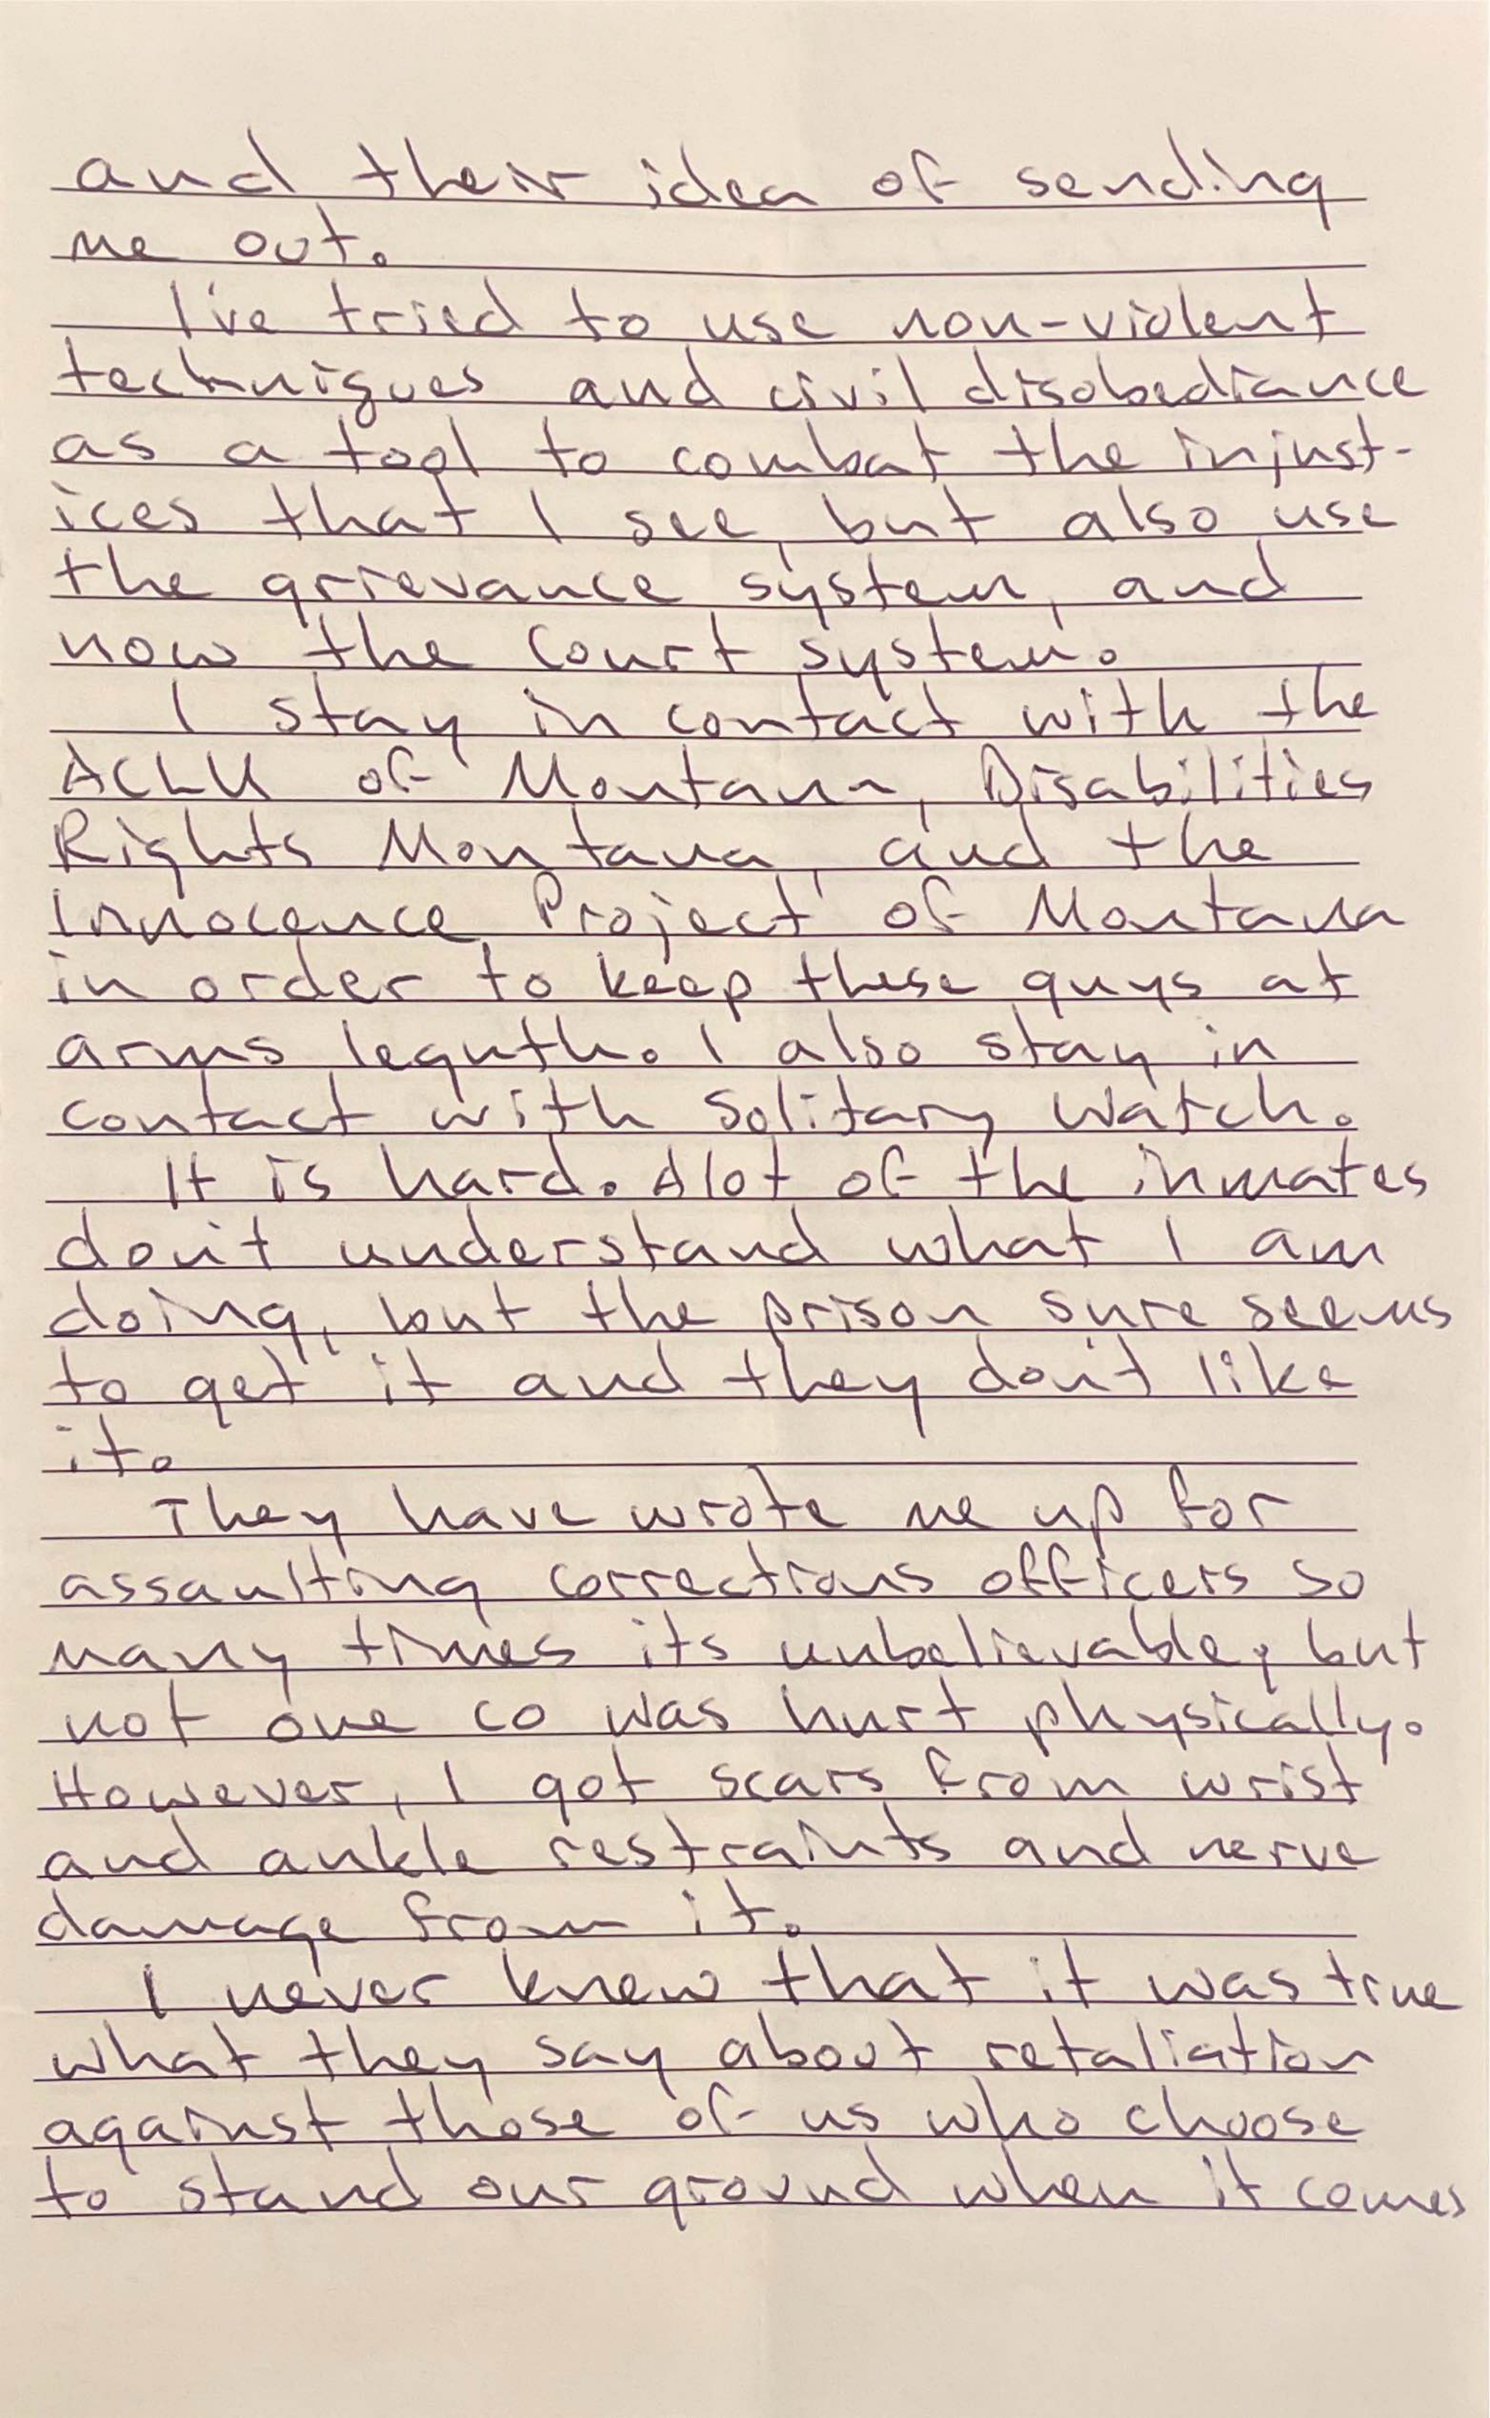 and their idea of sending
me out.
I've tried to use non-violent
techniques and civil disobediance
as a tool to combat the injust-
ices that I see, but also use
the grievance system, and
now the court system.
I stay in contact with the
ACLU of Montana, Disabilities
Rights Montana, and the
Innocence Project of Montana
in order to keep these guys at
arms legnth. I also stay in
contact with Solitary Watch.
It is hard. Alot of the inmates
don't understand what I am
doing, but the prison sure seems
to get it and they don't like
it.
They have wrote me up for
assaulting corrections officers so
many times its unbelievable, but
not one co was hurt physically.
However, I got scars from wrist
and ankle restraints and nerve
damage from it.
I never knew that it was true
what they say about retaliation
against those of us who choose
to stand our ground when it comes